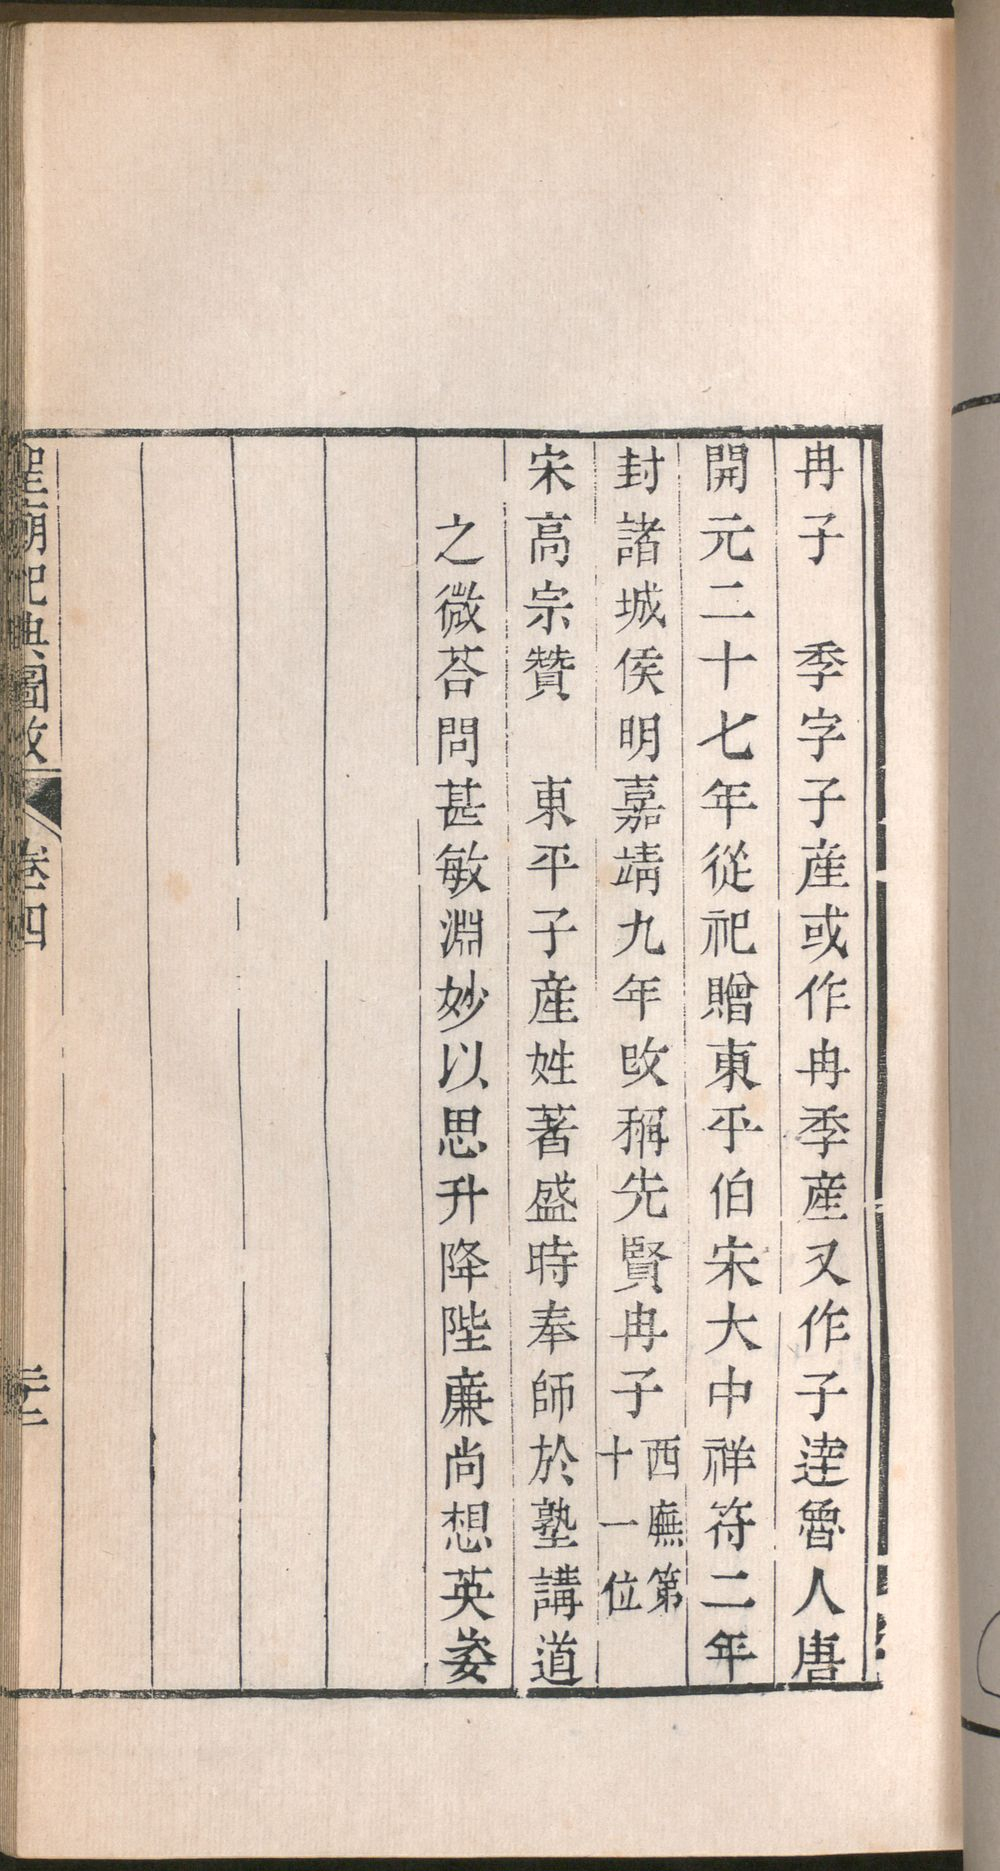 冉子　季字子產或作冉季產又作子達魯人唐
開元二十七年從祀贈東平伯宋大中祥符二年
封諸城侯明嘉靖九年改稱先賢冉子西廡第十一位
宋高宗贊　東平子產姓著盛時奉師於塾講道
之微荅問甚敏淵妙以思升降陛廉尚想英姿
聖廟祀典圖攷　卷四　二十二